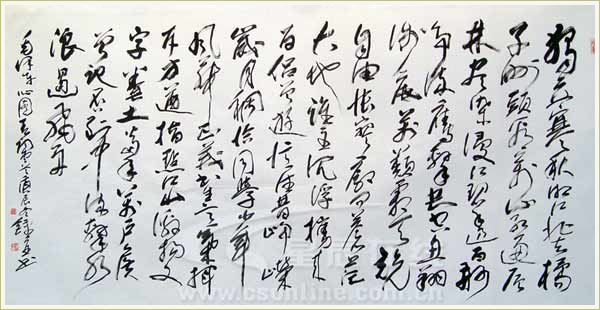 独立寒秋湘江北去橘
子洲头看万山红遍层
林尽染漫江碧透百舸
争流鹰击长空鱼翔
浅底万类霜天竞
自由怅寥廓问苍茫
大地谁主沉浮携来
百侣曾游忆往昔峥嵘
岁月稠恰同学少年
风华正茂书生意气挥
斥方遒指点江山激扬文
字粪土当年万户侯
曾记否到中流击水
浪遏飞舟
毛泽东沁园春
www.csonline.com.cn